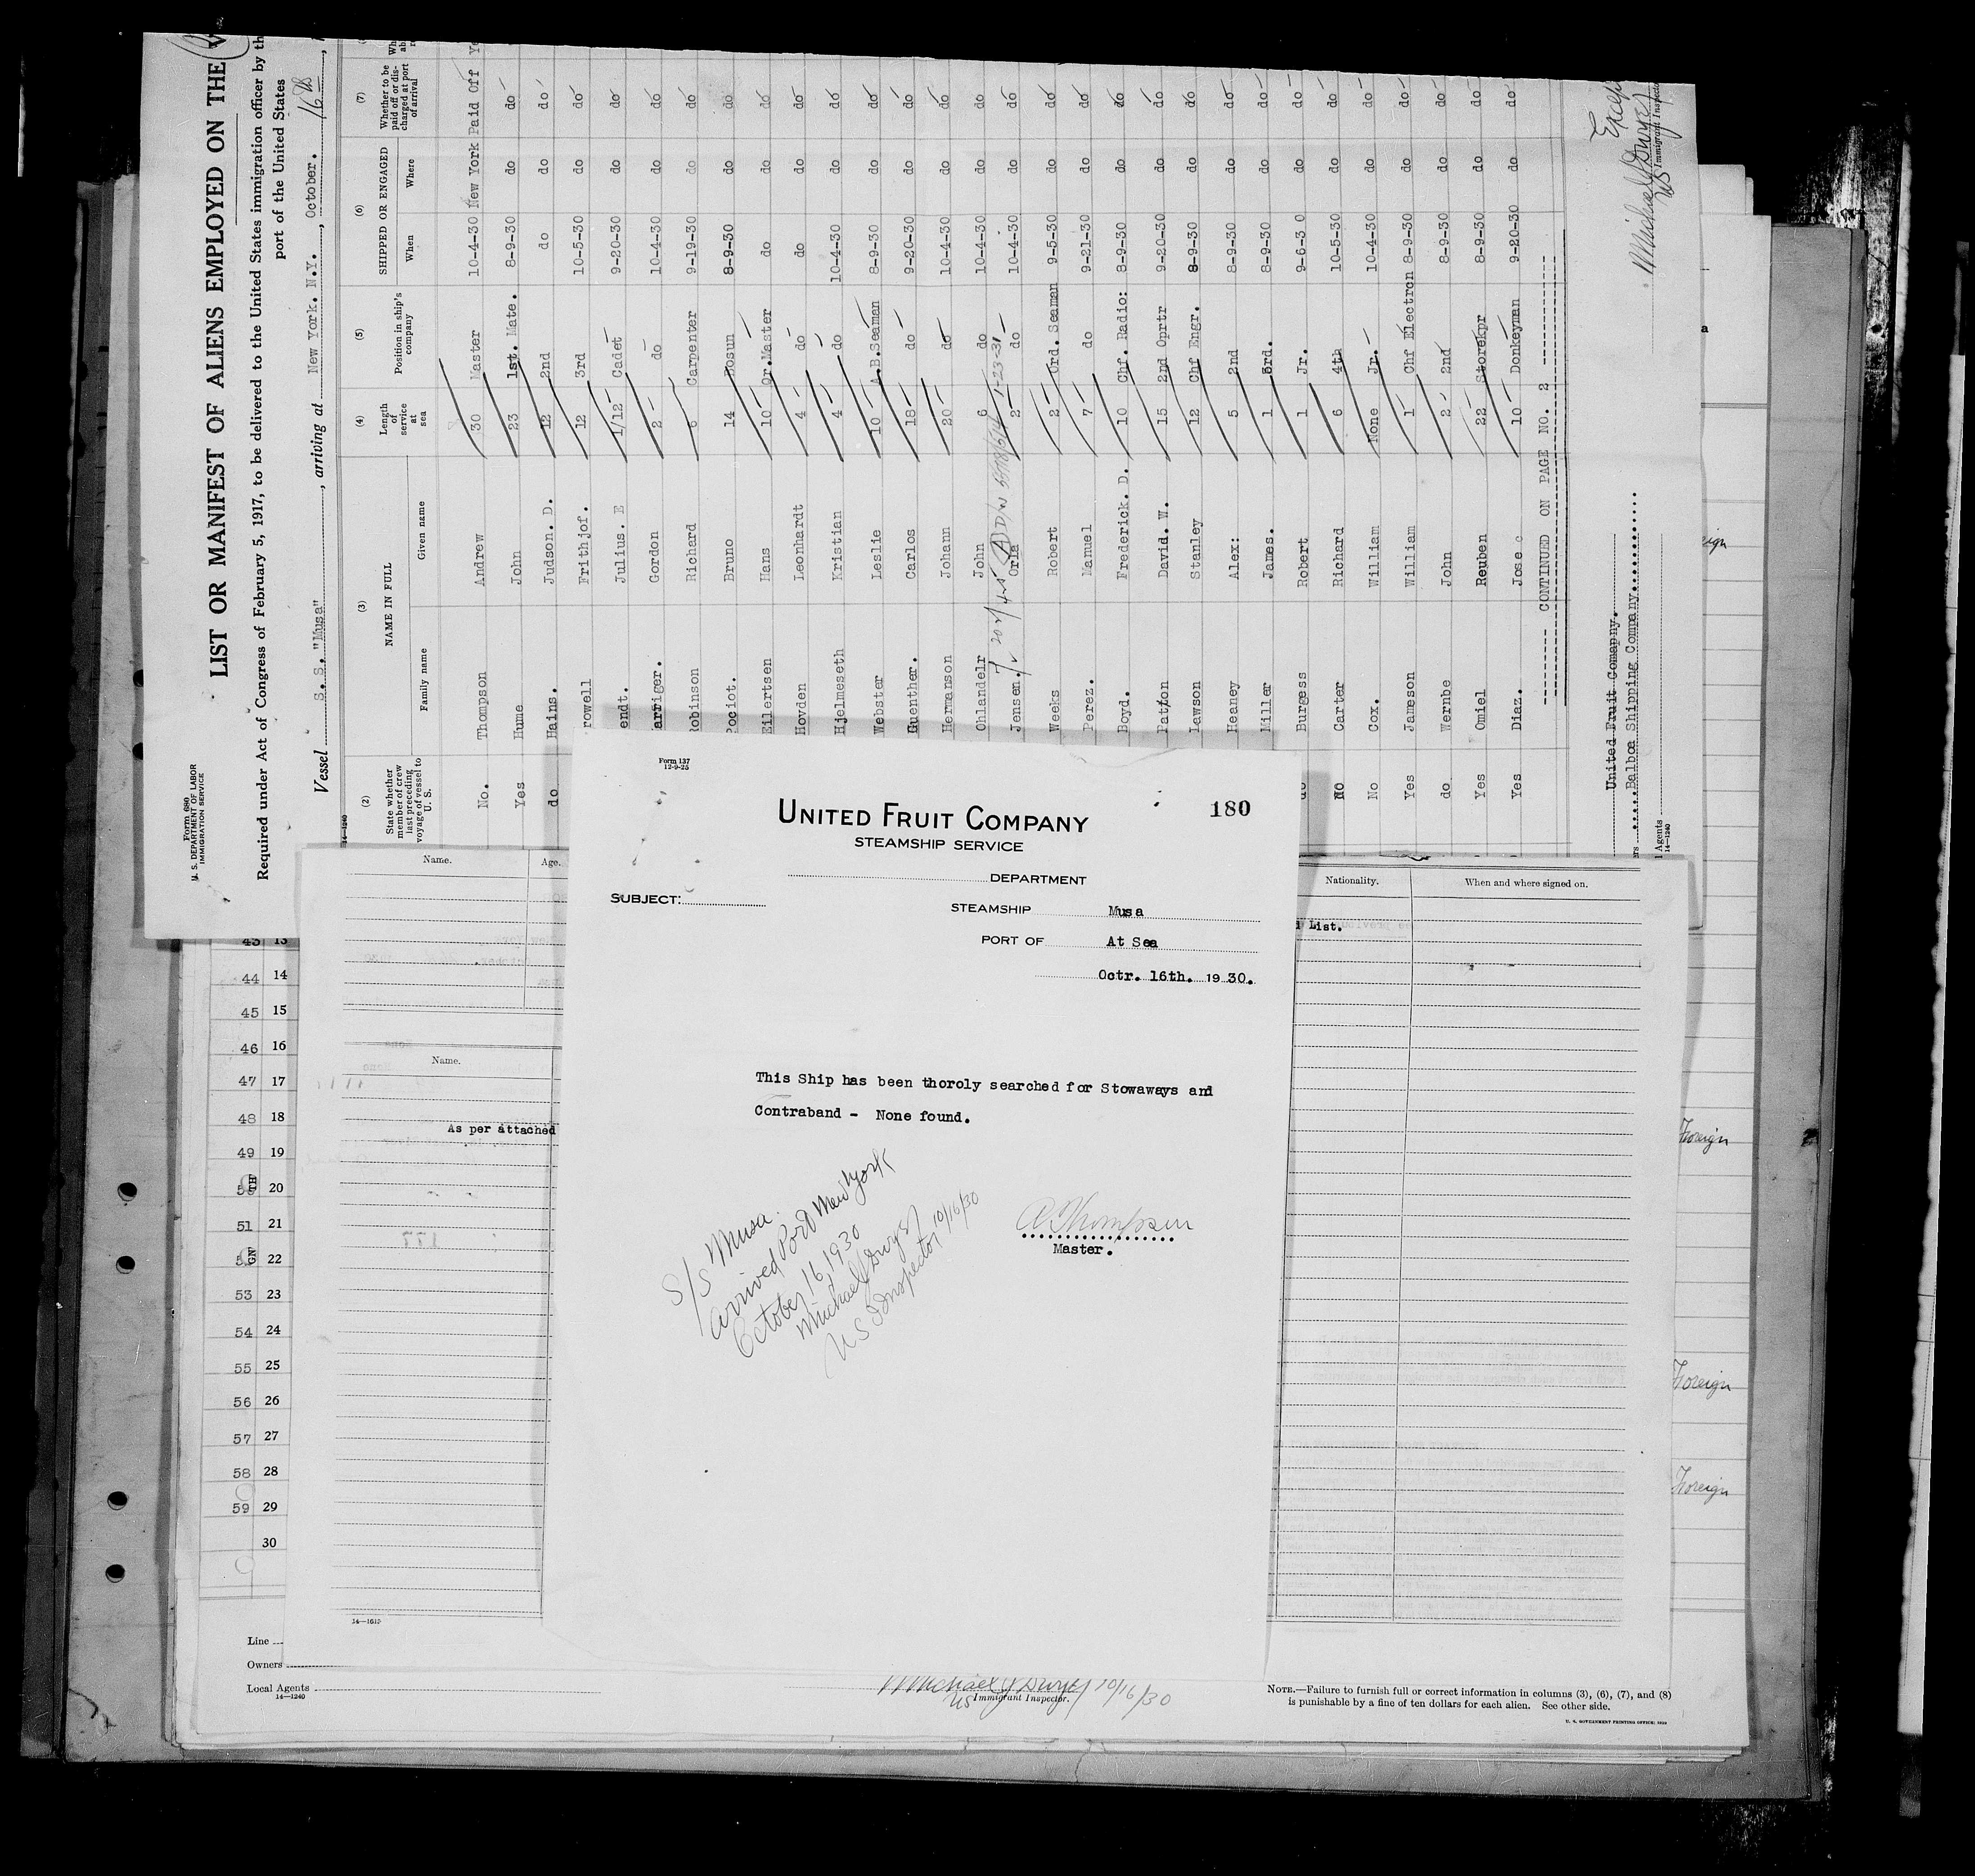 Form 680
U. S. DEPARTMENT OF LABOR
IMMIGRATION SERVICE
LIST OR MANIFEST OF ALIENS EMPLOYED ON THE
Required under Act of Congress of February 5, 1917, to be delivered to the United States immigration officer by th
port of the United States
Vessel S. S. "Musa", arriving at New York. N.Y., October. 16th
(2) (3) (4) (5) (6) (7)
State whether member of crew last preceding voyage of vessel to U. S.
NAME IN FULL
Family name Given name
Length of service at sea
Position in ship's company
SHIPPED OR ENGAGED
When Where
Whether to be paid off or discharged at port of arrival
No. Thompson Andrew 30 Master 10-4-30 New York Paid Off Ye
Yes Hume John 23 1st. Mate. 8-9-30 do do
do Hains. Judson. D. 12 2nd do do do
rowell Frithjof. 12 3rd 10-5-30 do do
endt. Julius. E 1/12 Cadet 9-20-30 do do
arriger. Gordon 2 do 10-4-30 do do
Robinson Richard 6 Carpenter 9-19-30 do do
Pociot. Bruno 14 Bosun 8-9-30 do do
Eilertsen Hans 10 Qr.Master do do do
Hovden Leonhardt 4 do do do do
Hjelmeseth Kristian 4 do 10-4-30 do do
Webster Leslie 10 A.B.Seaman 8-9-30 do do
Guenther. Carlos 18 do 9-20-30 do do
Hermanson Johann 20 do 10-4-30 do do
Ohhandelr John 6 do 10-4-30 do do
1-23-31
Jensen. Orla 2 do 10-4-30 do do
Weeks Robert 2 Ord. Seaman 9-5-30 do do
Perez. Manuel 7 do 9-21-30 do do
Boyd. Frederick. D. 10 Chf. Radio: 8-9-30 do do
Patton David. W. 15 2nd Oprtr 9-20-30 do do
Lawson Stanley 12 Chf Engr. 8-9-30 do do
Heaney Alex: 5 2nd 8-9-30 do do
Miller James. 1 3rd. 8-9-30 do do
do Burgess Robert 1 Jr. 9-6-3 0 do do
No Carter Richard 6 4th 10-5-30 do do
No Cox. William None Jr. 10-4-30 do do
Yes Jameson William 1 Chf Electron 8-9-30 do do
do Wernbe John 2 2nd 8-9-30 do do
Yes Omiel Reuben 22 Storekpr 8-9-30 do do
Yes Diaz. Jose c 10 Donkeyman 9-20-30 do do
------ CONTINUED ON PAGE NO. 2 ------
United Fruit Comapny.
Balboa Shipping Company.
l Agents
14—1240
Michael J Dwyer
US Immigrant Inspecto
Form 137
12-9-25
UNITED FRUIT COMPANY
STEAMSHIP SERVICE
180
DEPARTMENT
SUBJECT:
STEAMSHIP Musa
PORT OF At Sea
Octr. 16th. 1930.
This Ship has been thoroly searched for Stowaways and
Contraband - None found.
A Thompson
Master.
S/S Musa.
Arrived Port New York
October 16, 1930
Michael J Dwyer
US I Inspector 10/16/30
Name. Age.
Name.
As per attached
Nationality. When and where signed on.
List.
14—1240
43 13
44 14
45 15
46 16
47 17
48 18
49 19
20
51 21
22
53 23
54 24
55 25
56 26
57 27
58 28
59 29
30
Foreign
Foreign
Foreign
Line
Owners
Local Agents
14—1240
Michael J Dwyer 10/16/30
US Immigrant Inspector.
NOTE.—Failure to furnish full or correct information in columns (3), (6), (7), and (8)
is punishable by a fine of ten dollars for each alien. See other side.
U. S. GOVERNMENT PRINTING OFFICE